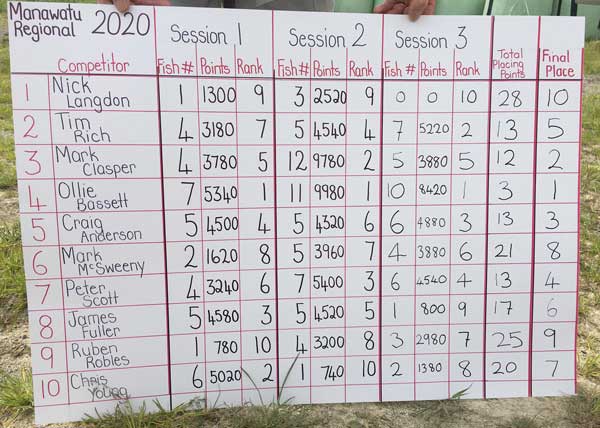 Manawatu Regional 2020 Session 1 Session 2 Session 3 Total Placing Points Final Place
Competitor Fish # Points Rank Fish # Points Rank Fish # Points Rank
1 Nick Langdon 1 1300 9 3 2520 9 0 0 10 28 10
2 Tim Rich 4 3180 7 5 4540 4 7 5220 2 13 5
3 Mark Clasper 4 3780 5 12 9780 2 5 3880 5 12 2
4 Ollie Bassett 7 5340 1 11 9980 1 10 8420 1 3 1
5 Craig Anderson 5 4500 4 5 4320 6 6 4880 3 13 3
6 Mark McSweeny 2 1620 8 5 3960 7 4 3880 6 21 8
7 Peter Scott 4 3240 6 7 5400 3 6 4540 4 13 4
8 James Fuller 5 4580 3 5 4520 5 1 800 9 17 6
9 Ruben Robles 1 780 10 4 3200 8 3 2980 7 25 9
10 Chris Young 6 5020 2 1 740 10 2 1380 8 20 7